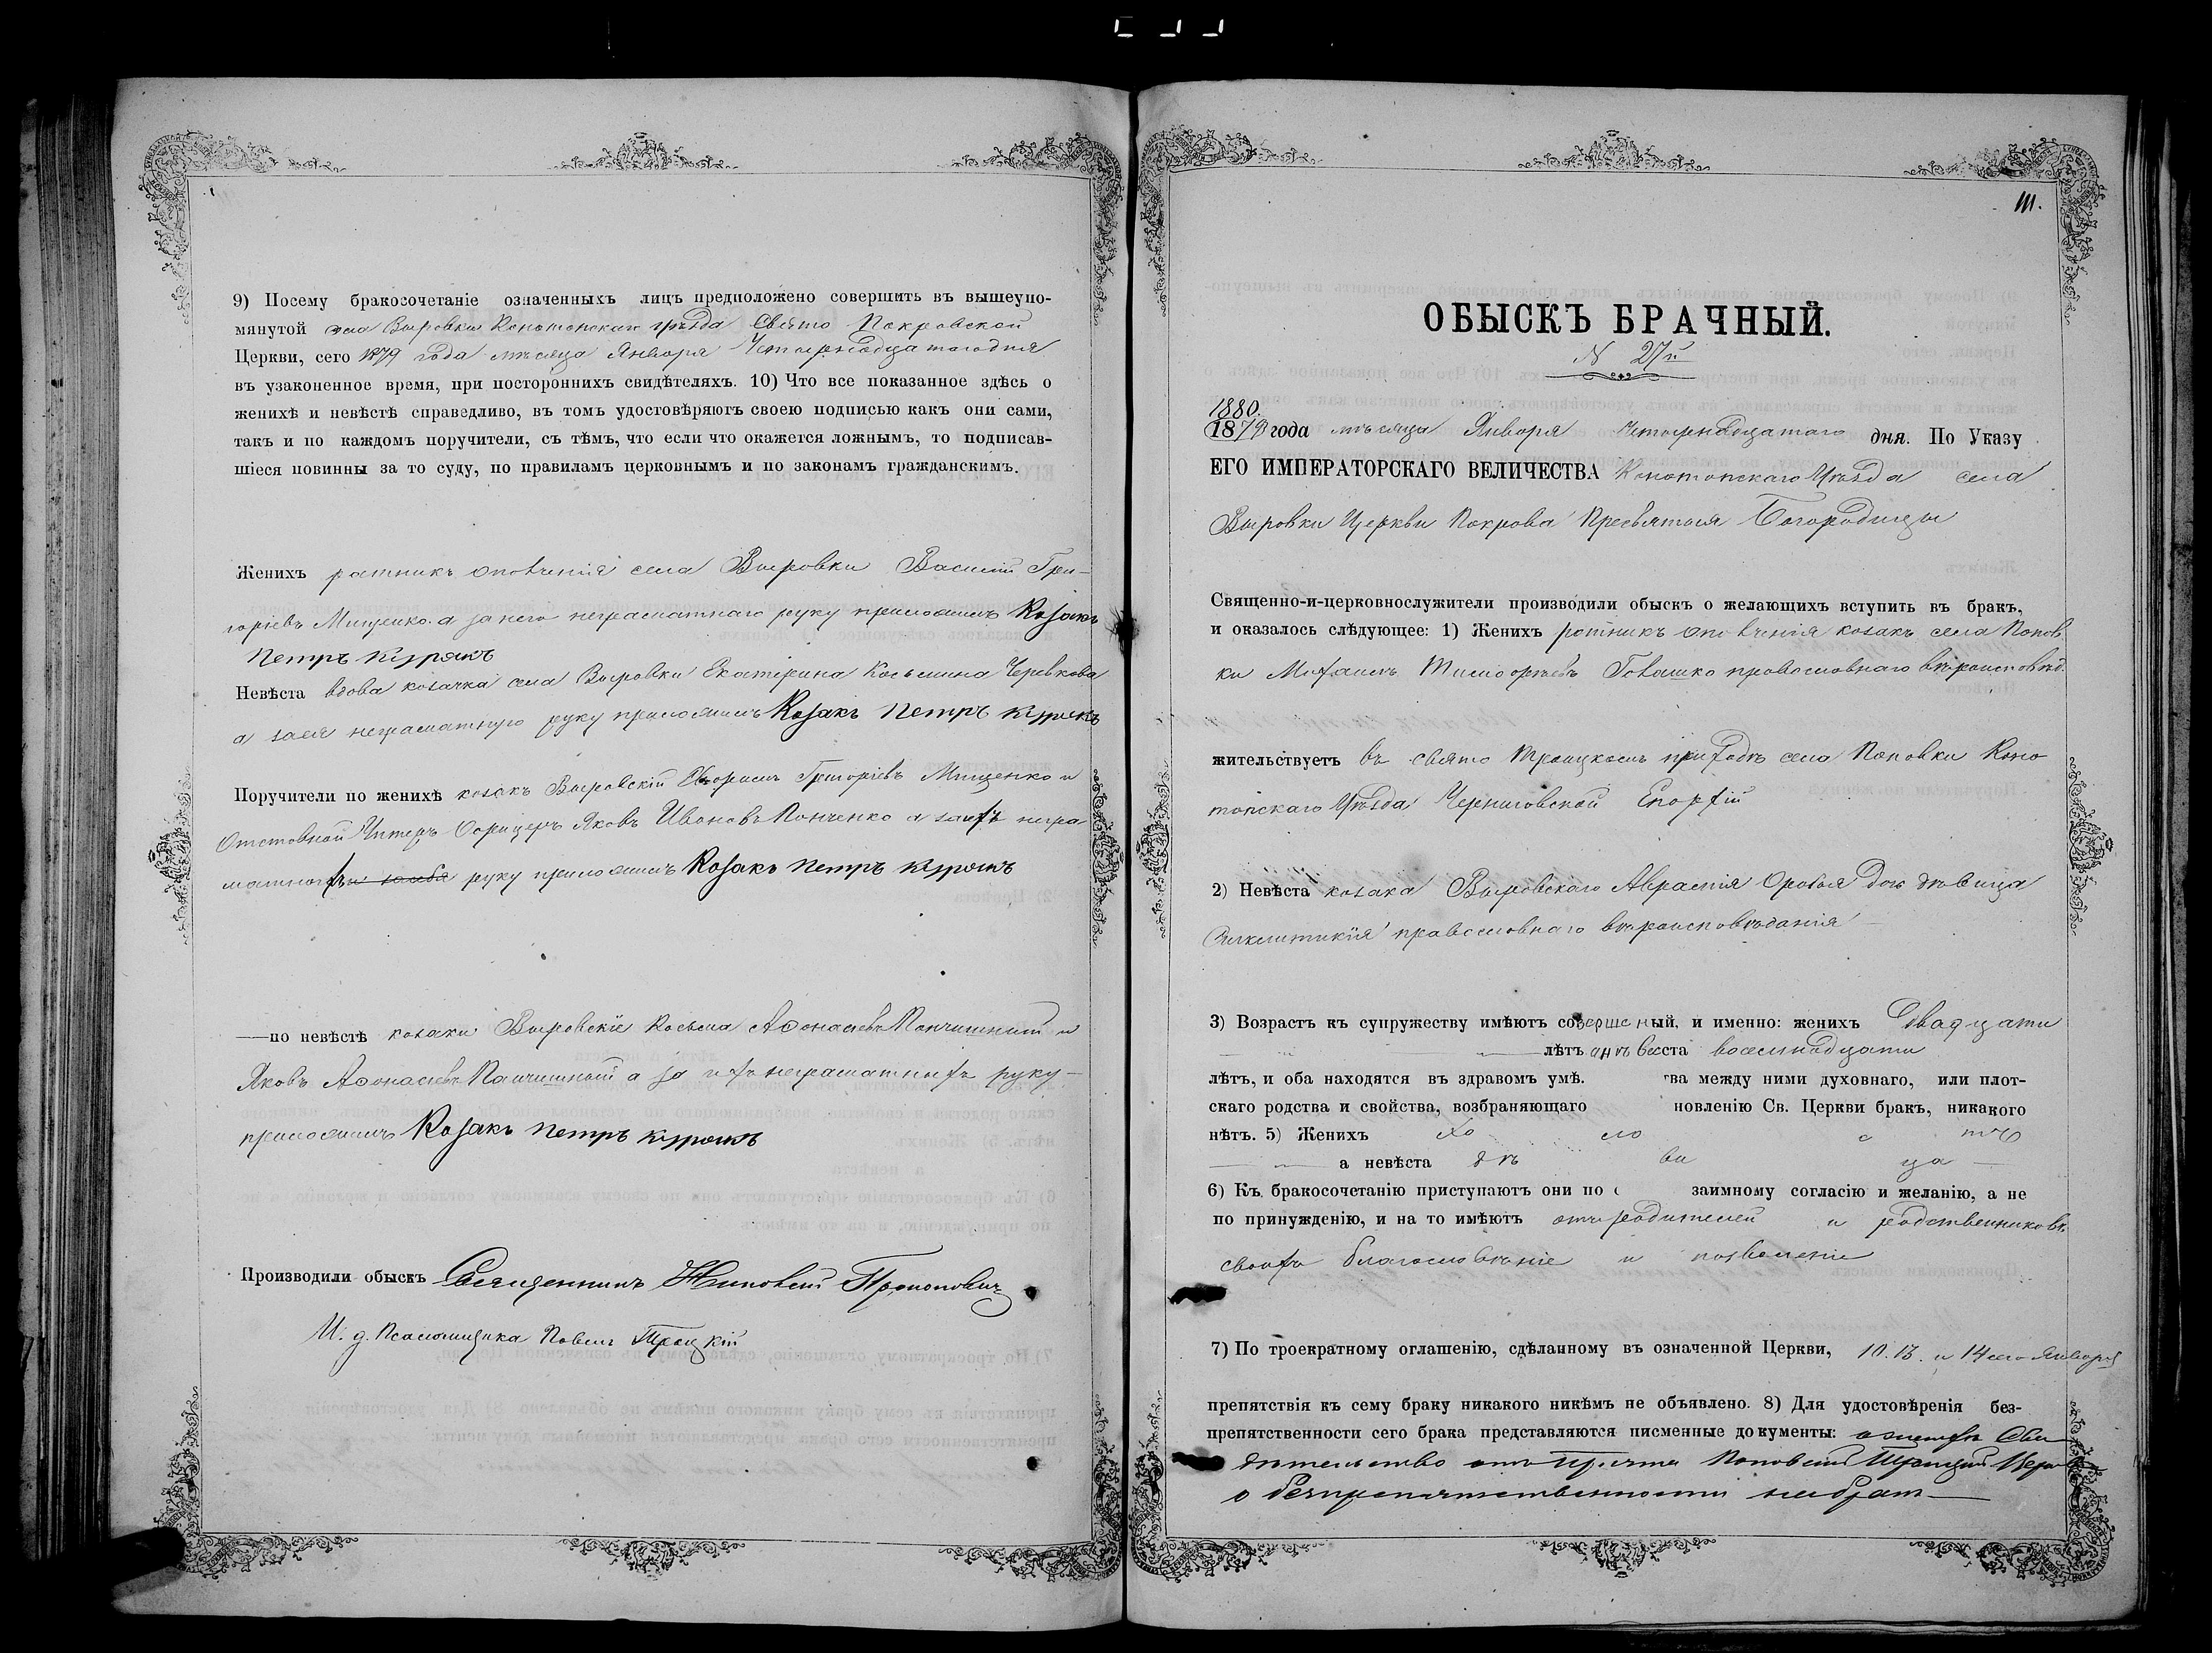 9) Посему бракосочетаніе означенныхъ лицъ предположено совершить въ вышеупо-
мянутой села Выровки Конотопскаго уѣзда Свято Покровской
Церкви, сего 1879 года мѣсяца Января Четырнадцатаго дня
въ узаконенное время, при постороннихъ свидѣтеляхъ. 10) Что все показанное здѣсь о
женихѣ и невѣстѣ справедливо, въ томъ удостовѣряютъ своею подписью какъ они сами,
такъ и по каждомъ поручители, съ тѣмъ, что если что окажется ложнымъ, то подписав-
шіеся повинны за то суду, по правиламъ церковнымъ и по законамъ гражданскимъ.
Женихъ ратникъ ополченія села Выровки Василій Гри-
горіевъ Мищенко. а за него неграматнаго руку приложилъ Козакъ
Петръ Курякъ
Невѣста вдова козачка села Выровки Екатерина Косьмина Черевкова
а за ея неграматную руку приложилъ Козакъ Петръ Курякъ
Поручители по женихѣ козакъ Выровскій Григоріевъ Мищенко и
Отставной Унтеръ Офицеръ Яковъ Ивановъ Панченко а за ихъ негра
матныхъ руку приложилъ Козакъ Петръ Курякъ
—по невѣстѣ козаки Выровскіе Косьма Афонасіевъ и
Яковъ Афонасіевъ а за ихъ неграматныхъ руку
приложилъ Козакъ Петръ Курякъ
Производили обыскъ Священникъ Зиновій Прокоповичъ
И. д. Псаломщика Павелъ Троцкій
111.
ОБЫСКЪ БРАЧНЫЙ.
N 27й
1880.
1879 года мѣсяца Января Четырнадцатаго дня. По Указу
ЕГО ИМПЕРАТОРСКАГО ВЕЛИЧЕСТВА Конотопскаго Уѣзда села
Выровки Церкви Покрова Пресвятыя Богородицы
Священно-и-церковнослужители производили обыскъ о желающихъ вступить въ бракъ,
и оказалось слѣдующее: 1) Женихъ ратникъ ополченія козакъ села Попов
ки Михаилъ Тимофѣевъ православнаго вѣроисповѣд.
жительствуетъ въ свято Троицкомъ приходѣ села Поповки Коно
топскаго Уѣзда Черниговской Епархіи
2) Невѣста козака Выровскаго дочь дѣвица
православнаго вѣроисповѣданія
3) Возрастъ къ супружеству имѣютъ совершенный, и именно: женихъ Двадцати
лѣтъ а невѣста восемнадцати
лѣтъ, и оба находятся въ здравомъ умѣ. тва между ними духовнаго, или плот-
скаго родства и свойства, возбраняющаго новленію Св. Церкви бракъ, никакого
нѣтъ. 5) Женихъ хо ло с тъ
а невѣста дѣ ви ца
6) Къ бракосочетанію приступаютъ они по с заимному согласію и желанію, а не
по принужденію, и на то имѣютъ отъ родителей и родственниковъ
своихъ благословеніе и позволеніе
7) По троекратному оглашенію, сдѣланному въ означенной Церкви, 10. 13. и 14 сего Января
препятствія къ сему браку никакого никѣмъ не объявлено. 8) Для удостовѣренія без-
препятственности сего брака представляются писменные документы: о женихѣ Сви
дѣтельство отъ Причта Поповской Троицкой Церкви
о безпрепятственности на бракъ